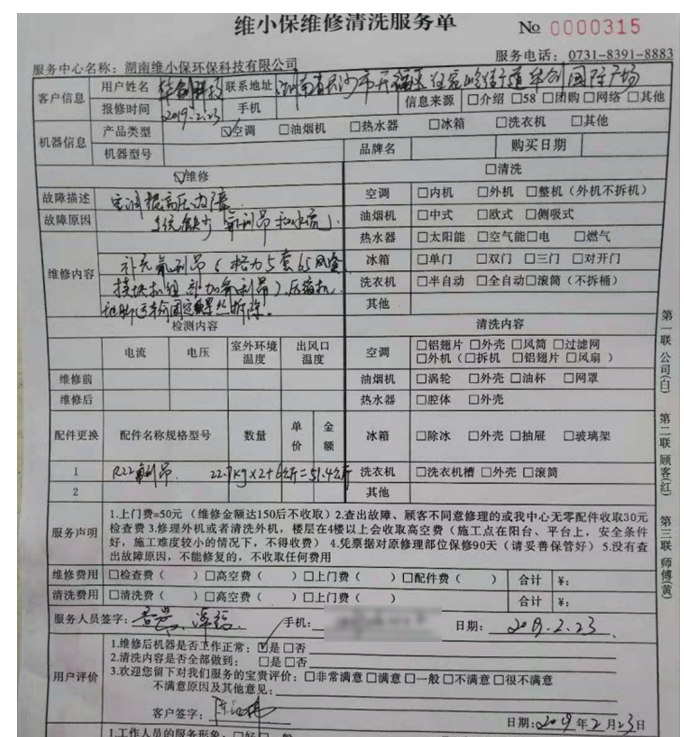 维小保维修清洗服务单 № 0000315
服务中心名称：湖南维小保环保科技有限公司 服务电话：0731-8391-8883
客户信息 用户姓名 华创 联系地址 湖南省长沙市开福区 华创国际广场
报修时间 2019.2.23 手机 信息来源 □介绍 □58 □团购 □网络 □其他
机器信息 产品类型 ☑空调 □油烟机 □热水器 □冰箱 □洗衣机 □其他
机器型号 品牌名 购买日期
☑维修 □清洗
故障描述 空调 高压 空调 □内机 □外机 □整机（外机不拆机）
故障原因 系统缺少氟利昂 油烟机 □中式 □欧式 □侧吸式
热水器 □太阳能 □空气能 □电 □燃气
维修内容 补充氟利昂（格力5套65风冷 冰箱 □单门 □双门 □三门 □对开门
模块机组 加氟利昂）压缩机 洗衣机 □半自动 □全自动 □滚筒（不拆桶）
地脚运输固定螺丝拆除。 其他
检测内容 清洗内容
电流 电压 室外环境温度 出风口温度 空调 □铝翅片 □外壳 □风筒 □过滤网
□外机（□拆机 □铝翅片 □风扇）
维修前 油烟机 □涡轮 □外壳 □油杯 □网罩
维修后 热水器 □腔体 □外壳
配件更换 配件名称规格型号 数量 单价 金额 冰箱 □除冰 □外壳 □抽屉 □玻璃架
1 R22氟利昂 22.7kg×2+6公斤=51.4公斤 洗衣机 □洗衣机槽 □外壳 □滚筒
2 其他
服务声明 1.上门费=50元（维修金额达150后不收取）2.查出故障、顾客不同意修理的或我中心无零配件收取30元
检查费 3.修理外机或者清洗外机，楼层在4楼以上会收取高空费（施工点在阳台、平台上，安全条件
好，施工难度较小的情况下，不得收费）4.凭票据对原修理部位保修90天（请妥善保管好）5.没有查
出故障原因，不能修复的，不收取任何费用
维修费用 □检查费（ ）□高空费（ ）□上门费（ ）□配件费（ ） 合计 ¥：
清洗费用 □清洗费（ ）□高空费（ ）□上门费（ ） 合计 ¥：
服务人员签字： 手机： 日期：2019.2.23
用户评价 1.维修后机器是否工作正常：☑是 □否
2.清洗内容是否全部做到：□是 □否
3.欢迎您留下对我们服务的宝贵评价：□非常满意 □满意 □一般 □不满意 □很不满意
不满意原因及其他意见：
客户签字： 日期：2019年2月23日
1.工作人员的服务形象：□好 □一般
第一联 公司(白)
第二联 顾客(红)
第三联 师傅(黄)